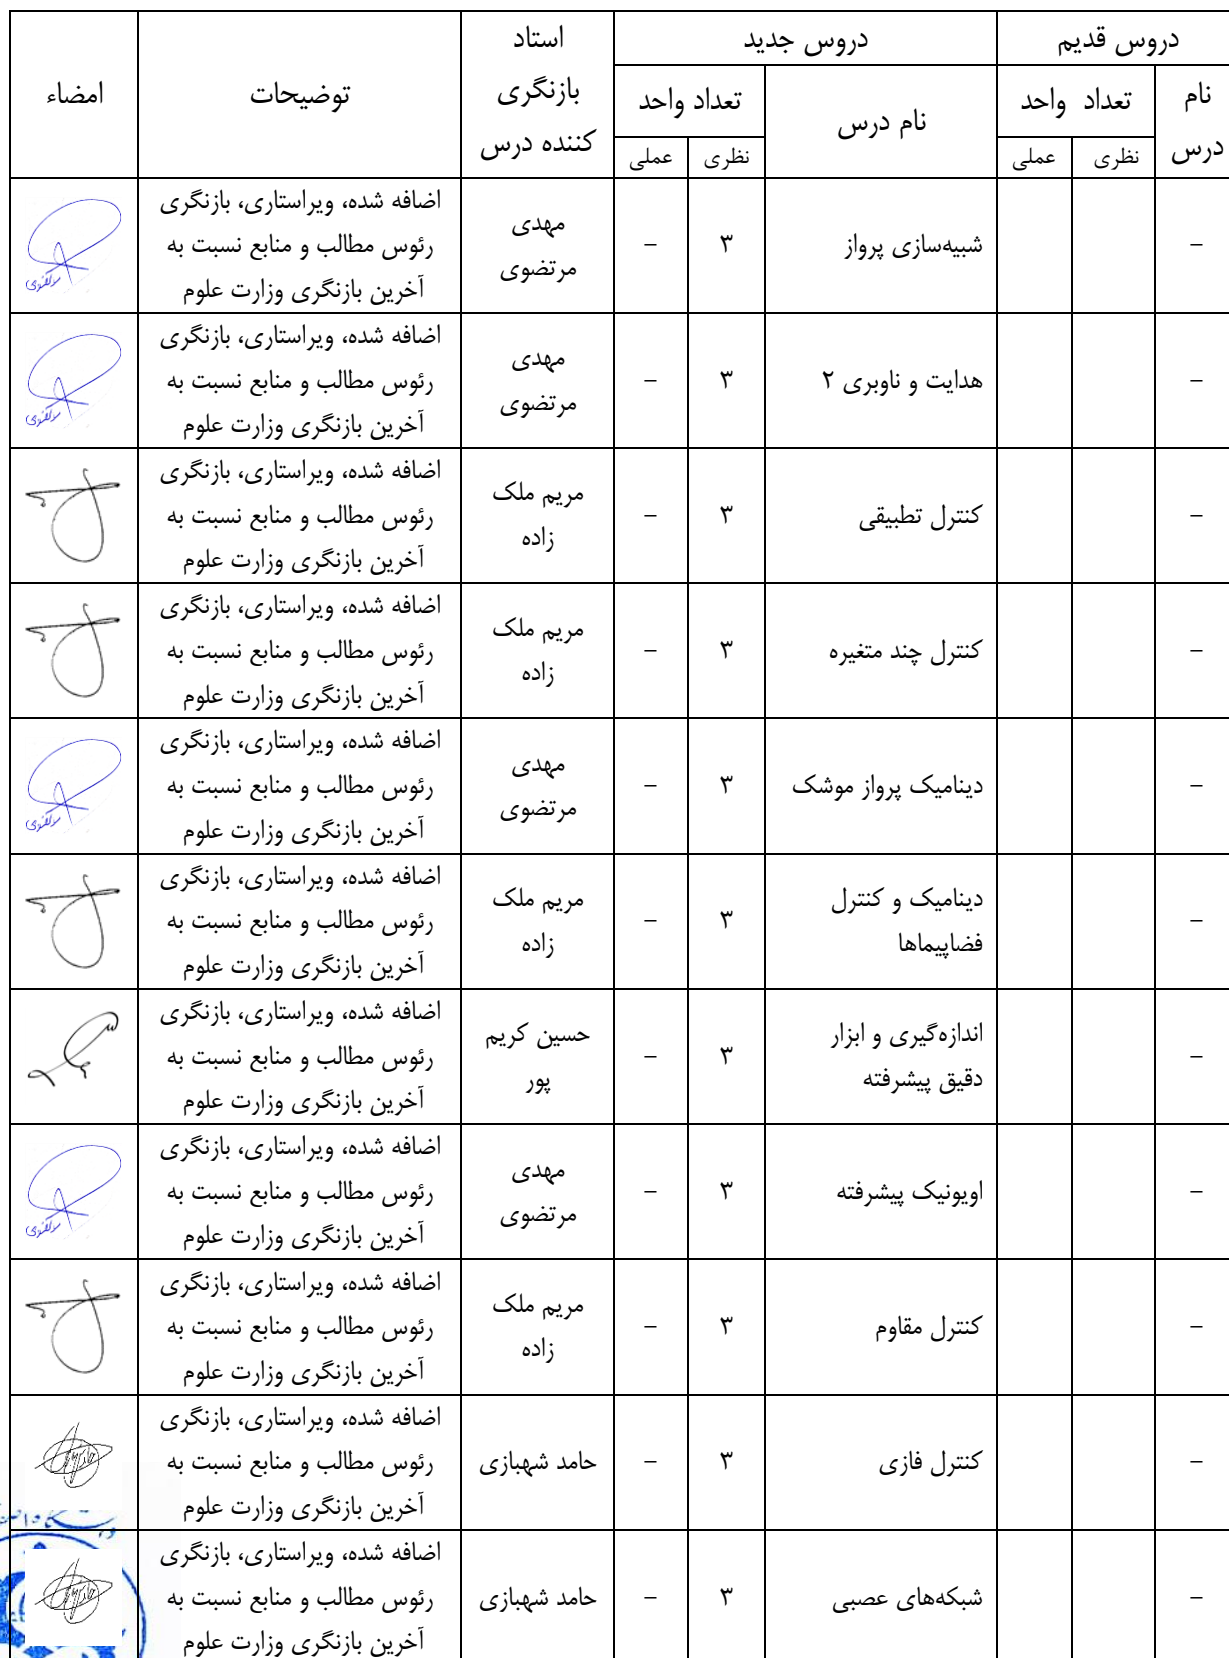 دروس قدیم
دروس جدید
استاد
بازنگری
کننده درس
توضیحات
امضاء
نام
درس
تعداد واحد
نام درس
تعداد واحد
نظری
عملی
نظری
عملی
–
شبیه‌سازی پرواز
۳
–
مهدی
مرتضوی
اضافه شده، ویراستاری، بازنگری
رئوس مطالب و منابع نسبت به
آخرین بازنگری وزارت علوم
–
هدایت و ناوبری ۲
۳
–
مهدی
مرتضوی
اضافه شده، ویراستاری، بازنگری
رئوس مطالب و منابع نسبت به
آخرین بازنگری وزارت علوم
–
کنترل تطبیقی
۳
–
مریم ملک
زاده
اضافه شده، ویراستاری، بازنگری
رئوس مطالب و منابع نسبت به
آخرین بازنگری وزارت علوم
–
کنترل چند متغیره
۳
–
مریم ملک
زاده
اضافه شده، ویراستاری، بازنگری
رئوس مطالب و منابع نسبت به
آخرین بازنگری وزارت علوم
–
دینامیک پرواز موشک
۳
–
مهدی
مرتضوی
اضافه شده، ویراستاری، بازنگری
رئوس مطالب و منابع نسبت به
آخرین بازنگری وزارت علوم
–
دینامیک و کنترل
فضاپیماها
۳
–
مریم ملک
زاده
اضافه شده، ویراستاری، بازنگری
رئوس مطالب و منابع نسبت به
آخرین بازنگری وزارت علوم
–
اندازه‌گیری و ابزار
دقیق پیشرفته
۳
–
حسین کریم
پور
اضافه شده، ویراستاری، بازنگری
رئوس مطالب و منابع نسبت به
آخرین بازنگری وزارت علوم
–
اویونیک پیشرفته
۳
–
مهدی
مرتضوی
اضافه شده، ویراستاری، بازنگری
رئوس مطالب و منابع نسبت به
آخرین بازنگری وزارت علوم
–
کنترل مقاوم
۳
–
مریم ملک
زاده
اضافه شده، ویراستاری، بازنگری
رئوس مطالب و منابع نسبت به
آخرین بازنگری وزارت علوم
–
کنترل فازی
۳
–
حامد شهبازی
اضافه شده، ویراستاری، بازنگری
رئوس مطالب و منابع نسبت به
آخرین بازنگری وزارت علوم
–
شبکه‌های عصبی
۳
–
حامد شهبازی
اضافه شده، ویراستاری، بازنگری
رئوس مطالب و منابع نسبت به
آخرین بازنگری وزارت علوم